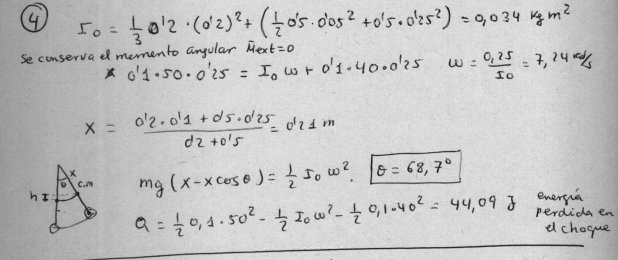 ④ I₀ = 1/3 0'2 · (0'2)² + (1/2 0'5 · 0'05² + 0'5 · 0'25²) = 0,034 kg m²
Se conserva el momento angular Mext = 0
* 0'1 · 50 · 0'25 = I₀ ω + 0'1 · 40 · 0'25 ω = 0,25/I₀ = 7,24 rad/s
x = (0'2 · 0'1 + 0'5 · 0'25)/(0'2 + 0'5) = 0'21 m
x
θ c.m
h
mg (x - x cos θ) = 1/2 I₀ ω². θ = 68,7°
Q = 1/2 0,1 · 50² - 1/2 I₀ ω² - 1/2 0,1 · 40² = 44,09 J energía
perdida en
el choque